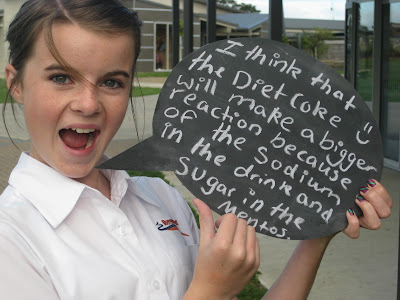 I think that
the Diet Coke
will make a bigger
reaction because
of the Sodium
in the drink and
Sugar in the
Mentos.